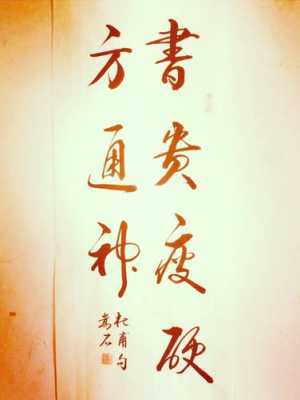 書貴瘦硬
方通神
杜甫句